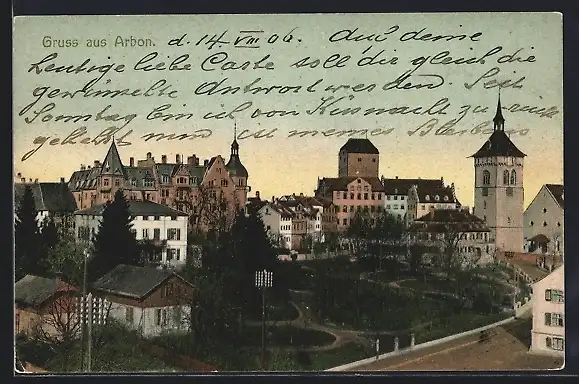 Gruss aus Arbon. d. 14. VIII 06. Auf deine
heutige liebe Carte soll dir gleich die
gewünschte Antwort werden. Seit
Sonntag bin ich von Küsnacht zurück
geht nun zu meines